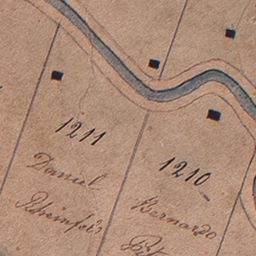 1211
Daniel
Rheinfels
1210
Bernardo